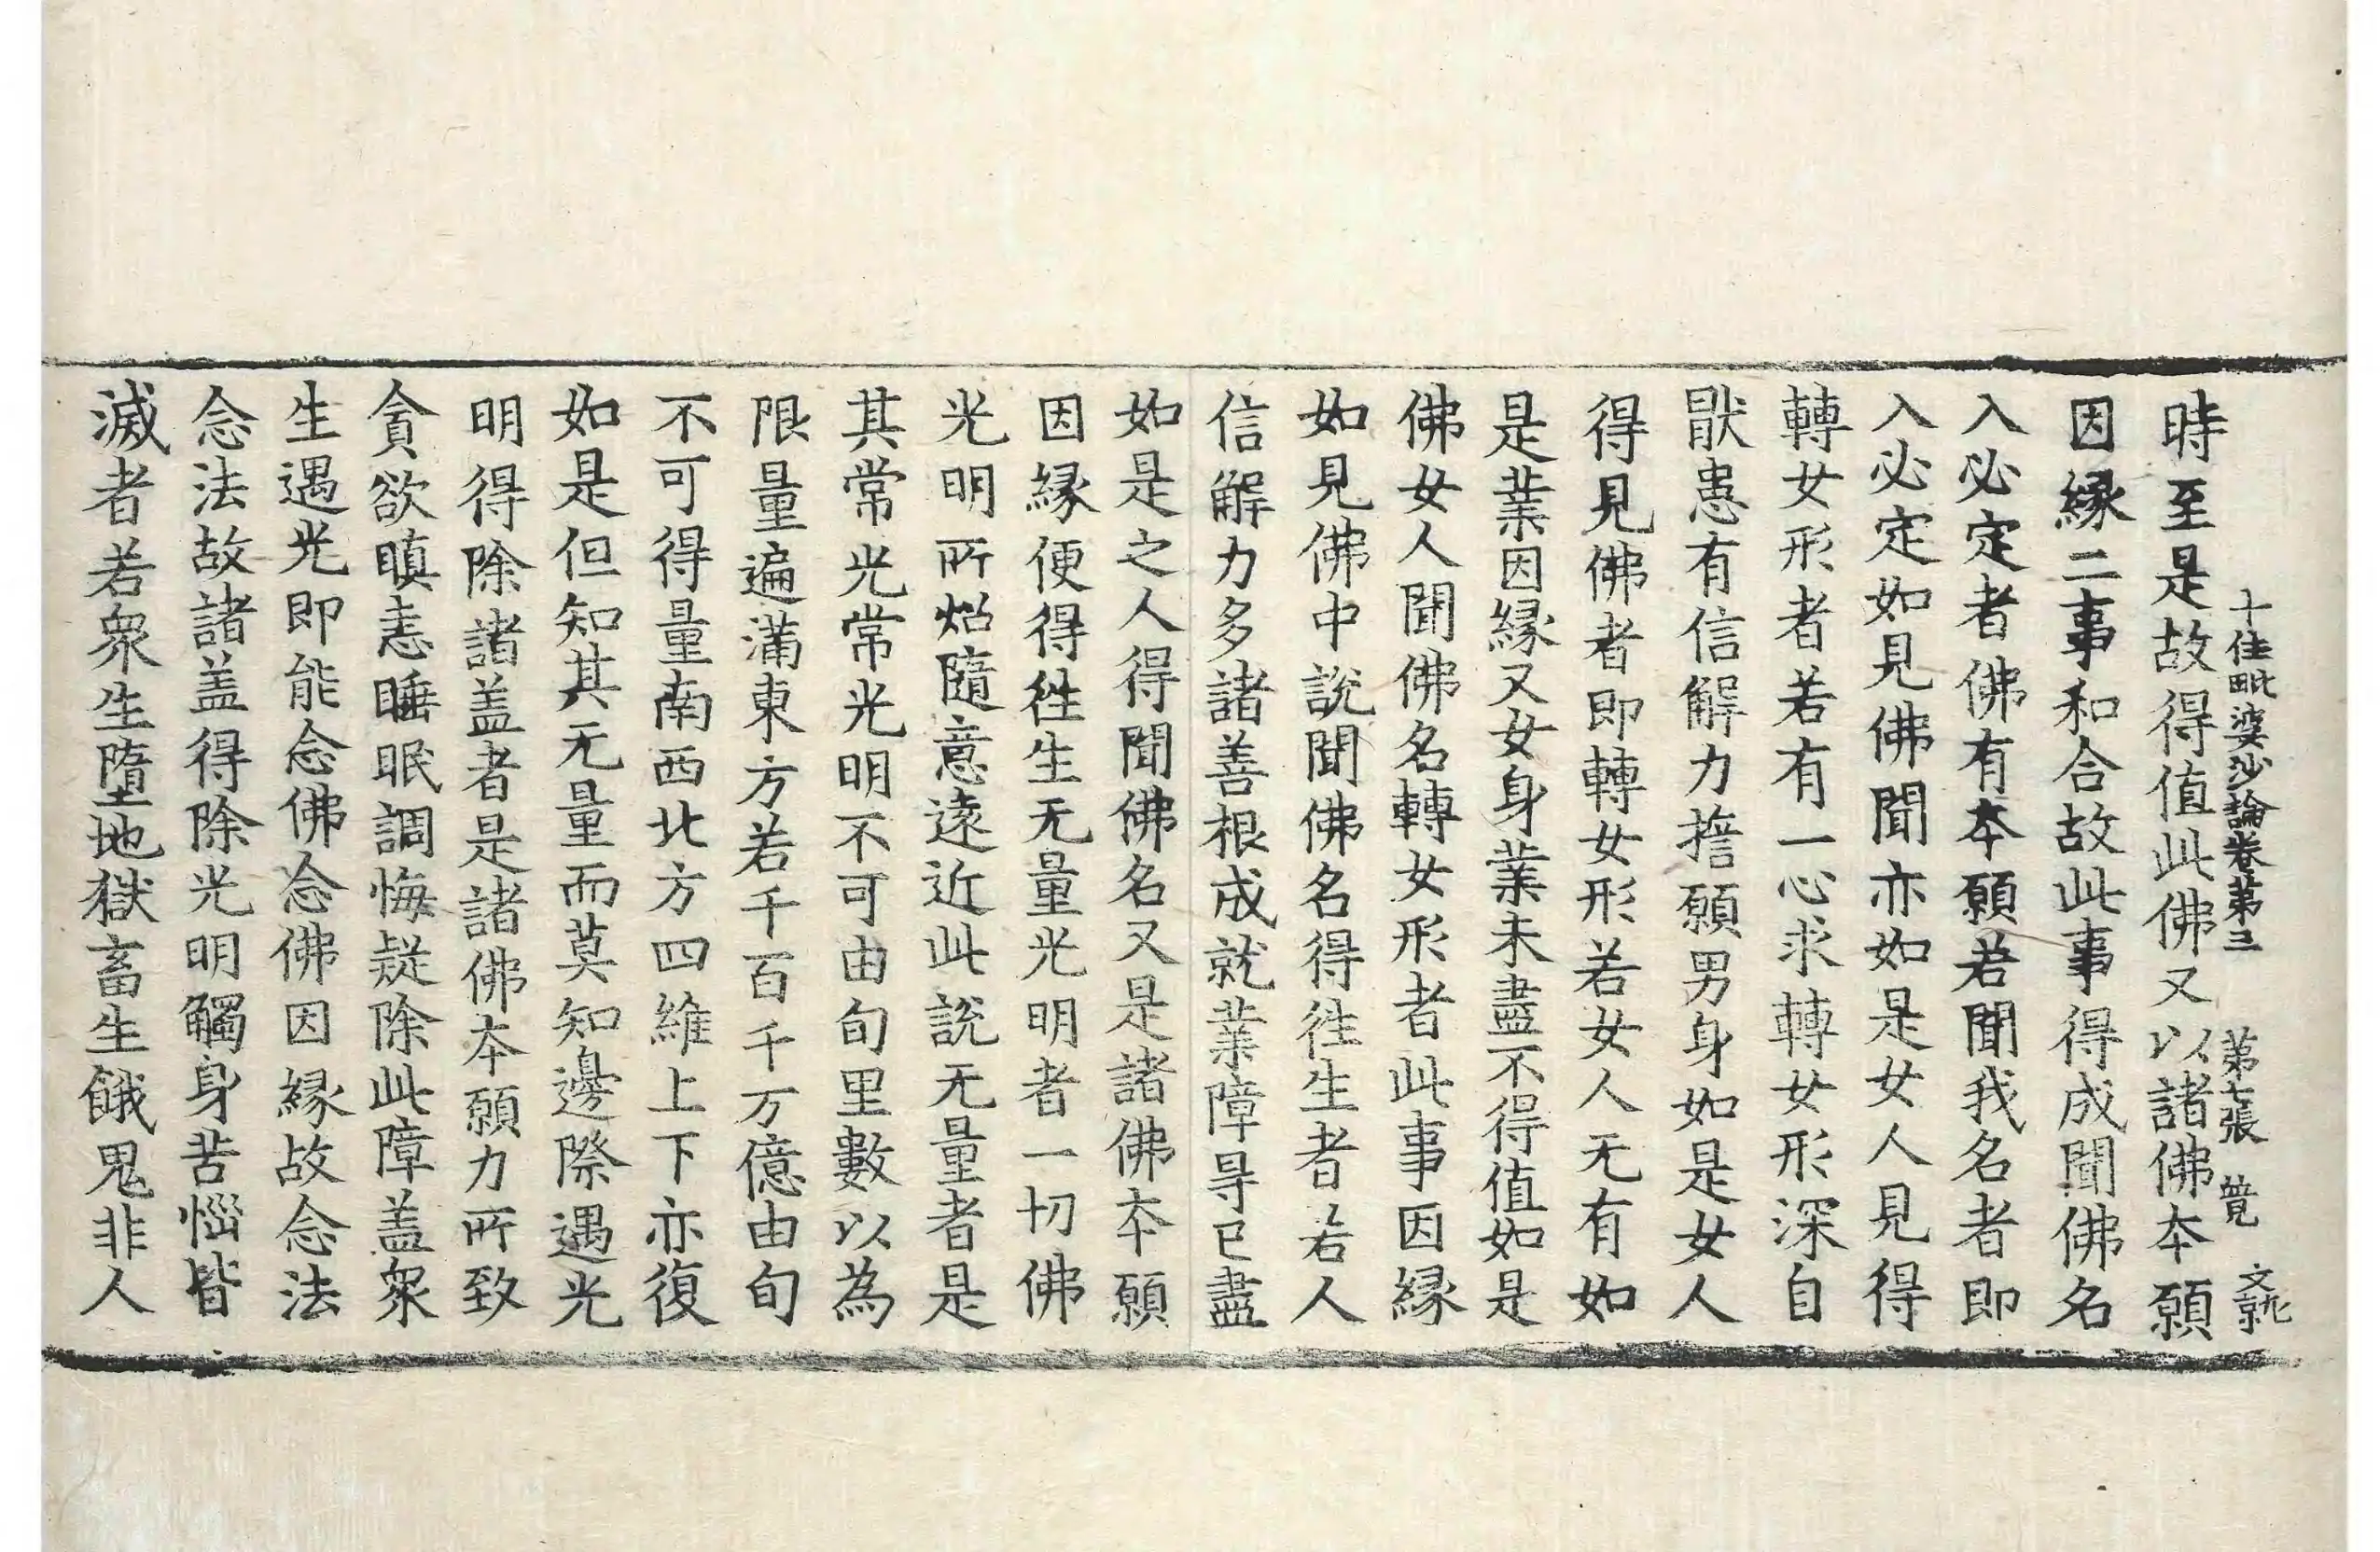 十住毗婆沙論卷第三 第七張 竟 文㧡
時至是故得值此佛又以諸佛夲願
因縁二事和合故此事得成聞佛名
入必定者佛有夲願若聞我名者即
入必定如見佛聞亦如是女人見得
轉女形者若有一心求轉女形深自
猒患有信解力擔願男身如是女人
得見佛者即轉女形若女人无有如
是業因縁又女身業未盡不得值如是
佛女人聞佛名轉女形者此事因縁
如見佛中說聞佛名得徃生者若人
信解力多諸善根成就業障㝵已盡
如是之人得聞佛名又是諸佛夲願
因縁便得徃生无量光明者一切佛
光明所炤隨意遠近此說无量者是
其常光常光明不可由旬里數以為
限量遍滿東方若千百千万億由旬
不可得量南西北方四維上下亦復
如是但知其无量而莫知邊際遇光
明得除諸盖者是諸佛夲願力所致
貪欲瞋恚睡眠調悔疑除此障盖衆
生遇光即能念佛念佛因縁故念法
念法故諸盖得除光明觸身苦惱皆
滅者若衆生墮地獄畜生餓鬼非人